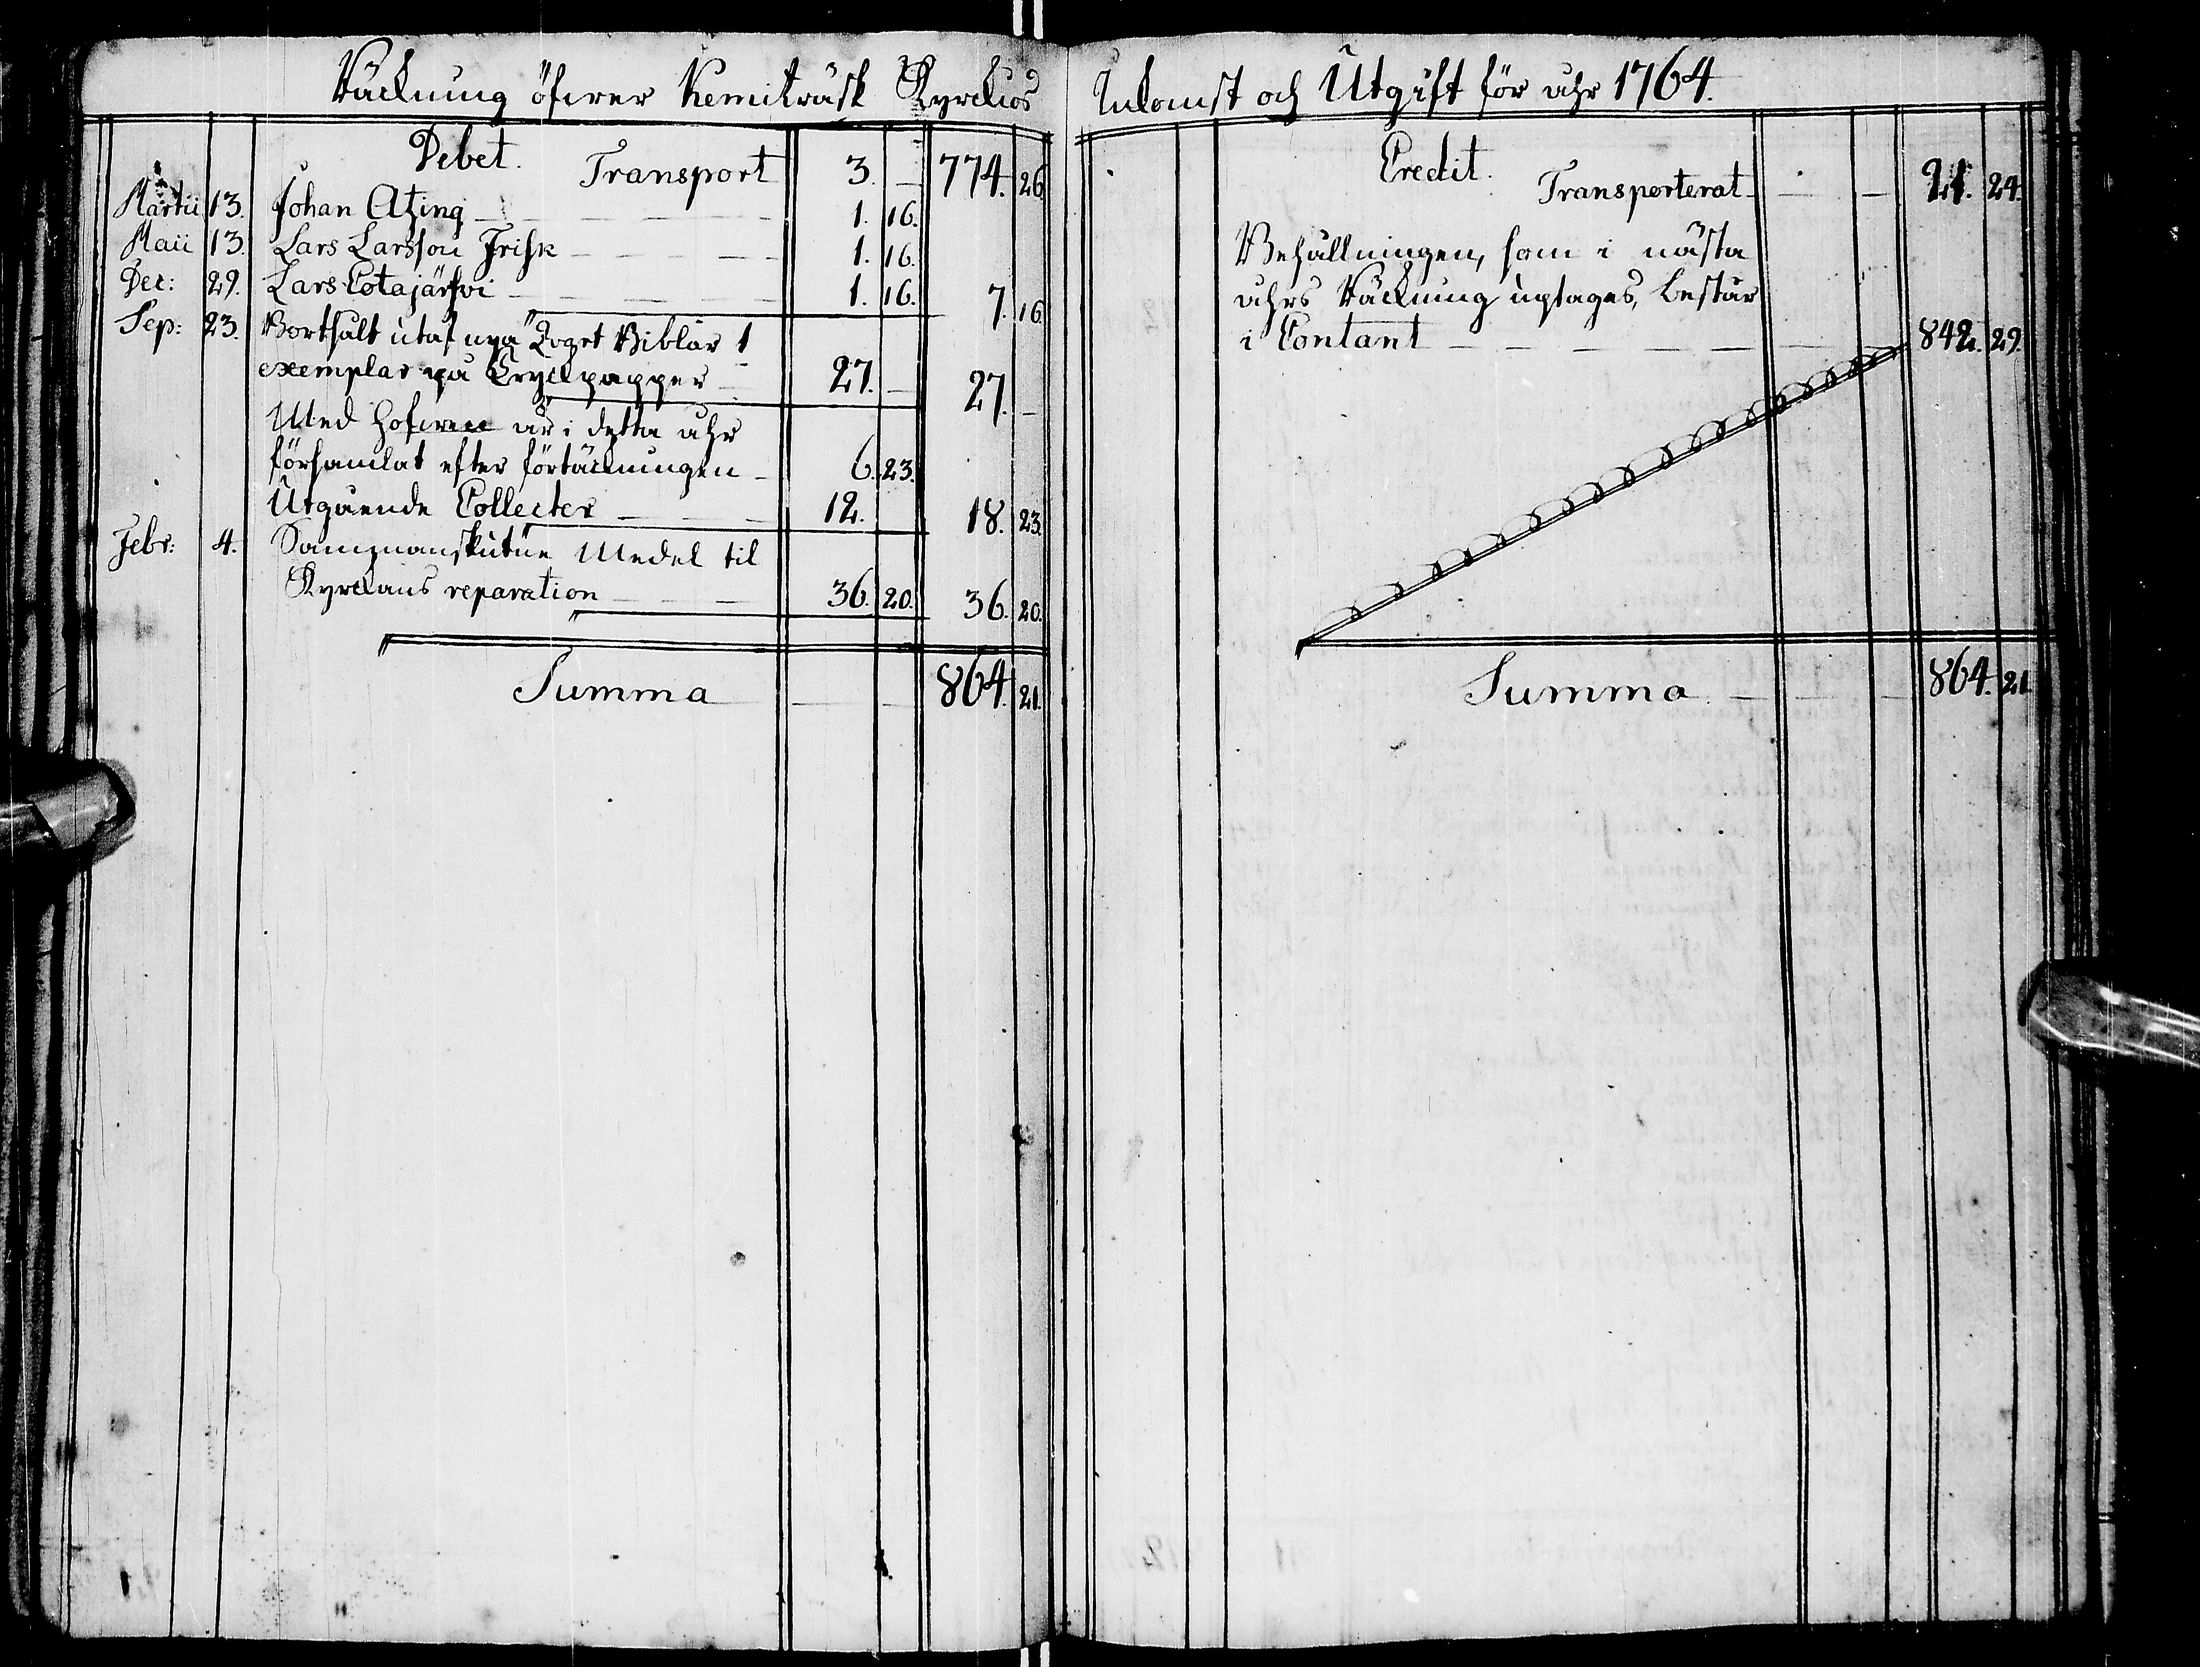 Räckning öfwer Kemiträsk Kyrckios Inkomst och Utgift för åhr 1764.
Debet. Transport 3. — 774. 26.
Martii 13. Johan Atzing 1. 16.
Maii 13. Lars Larsson Frisk 1. 16.
Dec: 29. Lars Cotajärfwi 1. 16. 7. 16.
Sep: 23. Bortsålt utaf nya Biblar 1
exemplar på Tryckpapper 27. — 27. —
Med Hofwen är i detta åhr
församlat efter förtäckningen 6. 23.
Utgående Collecter 12. 18. 23.
Febr: 4. Sammanskutne Medel til
Kyrckans reparation 36. 20. 36. 20.
Summa 864. 21.
Credit. Transporterat 21. 24.
Behållningen, som i nästa
åhrs Räckning uptages, består
i Contant 842. 29.
Summa 864. 21.